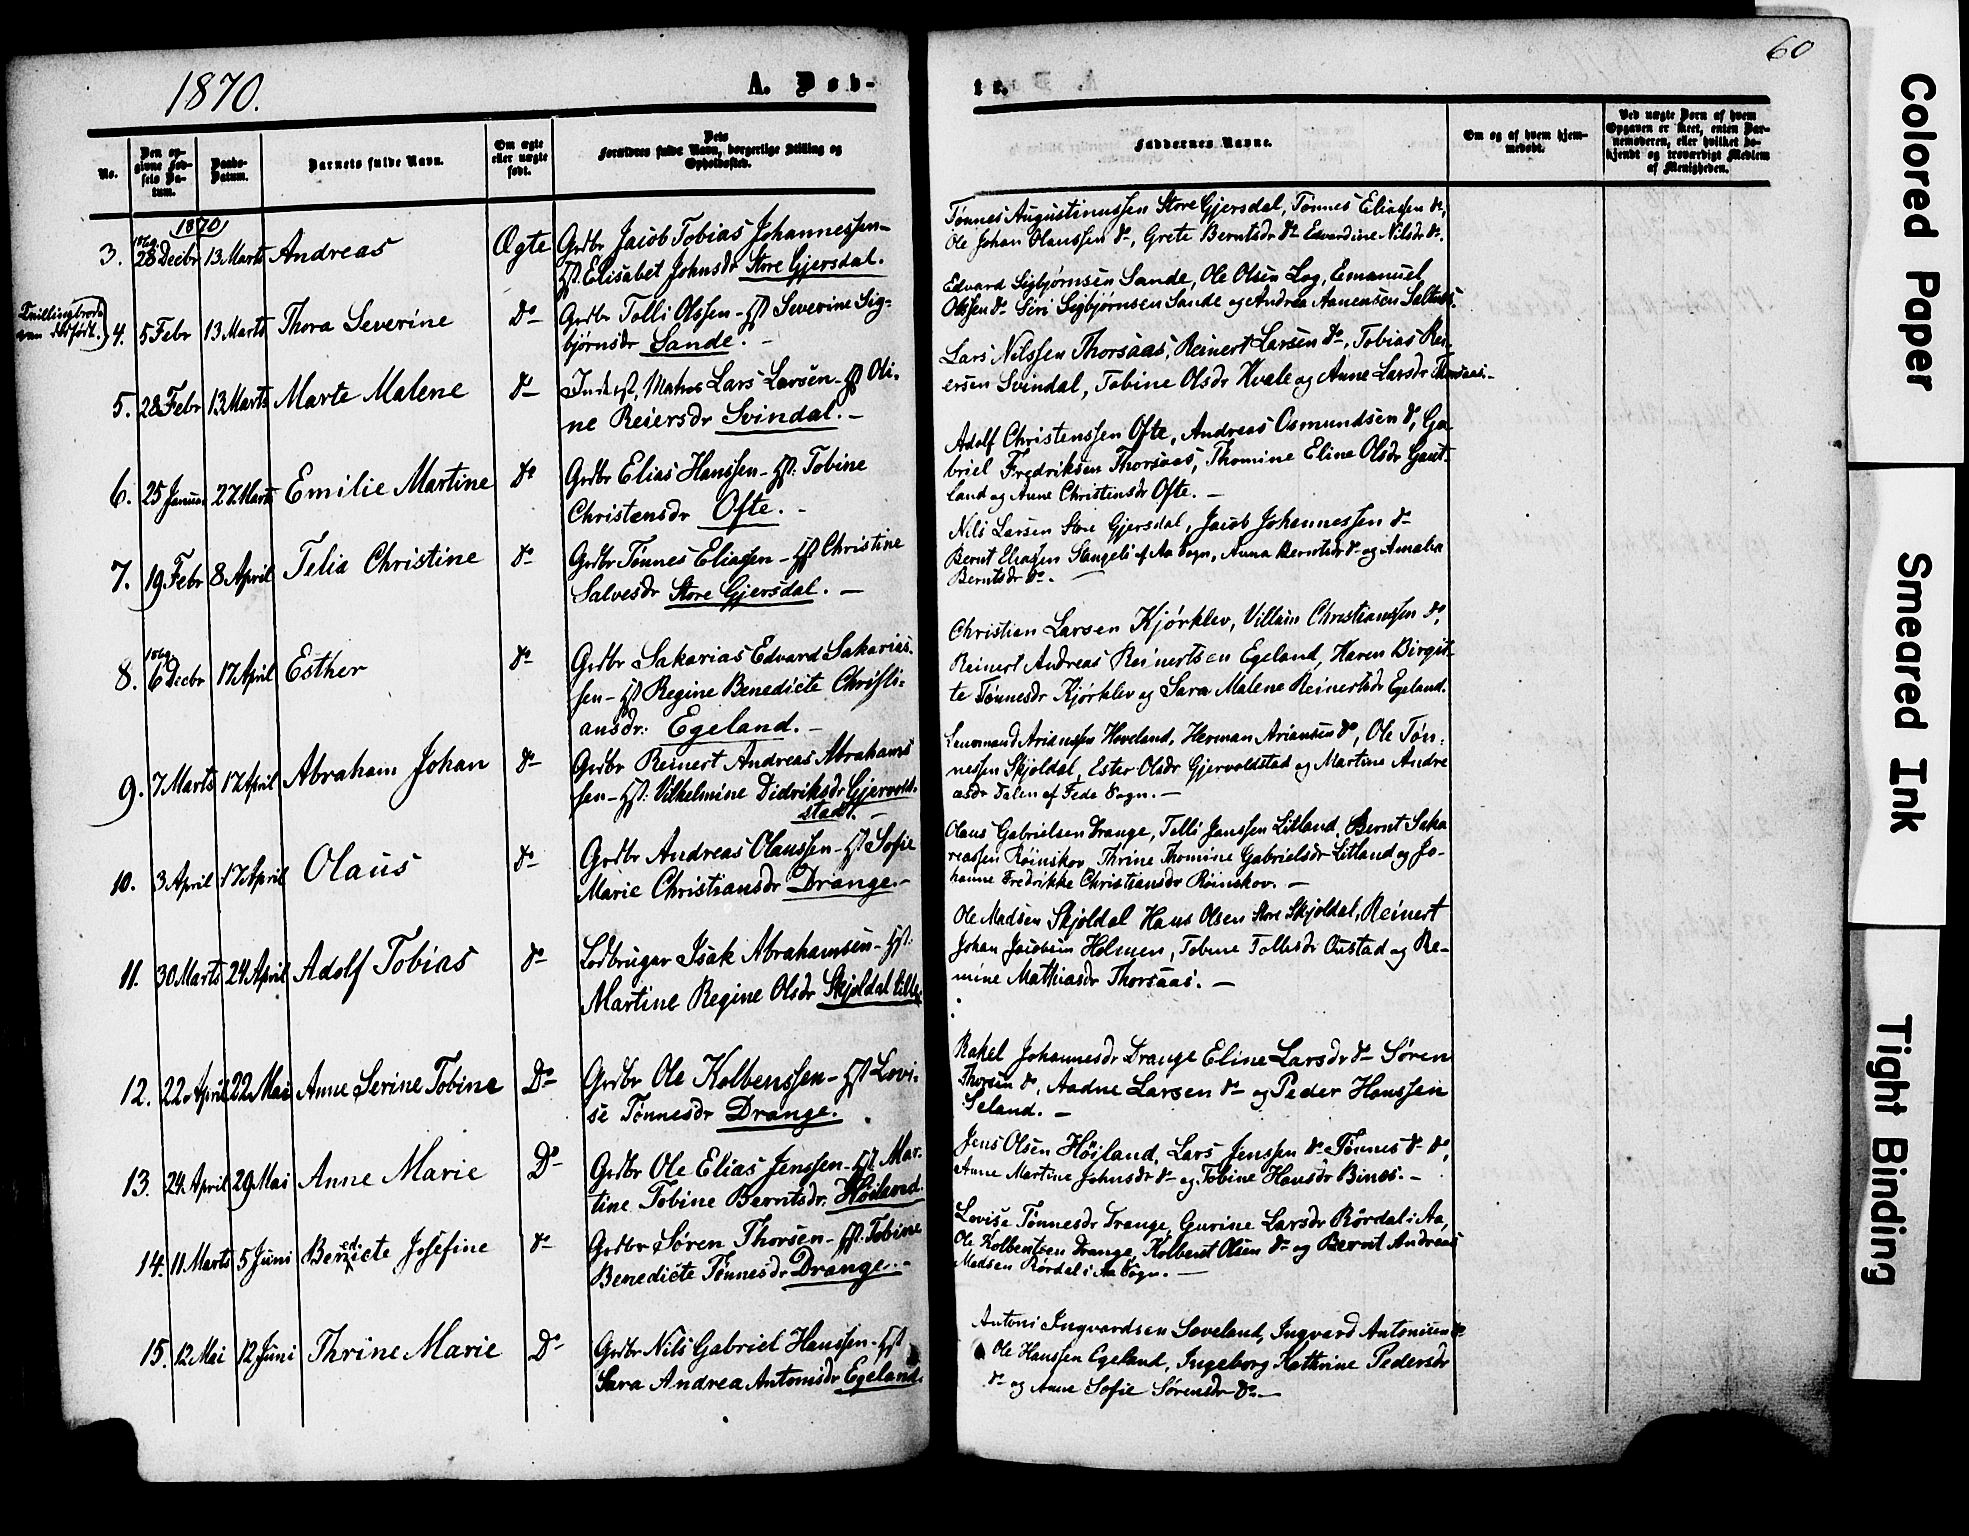 1870.
A. Døb-
te.
60
No.
Den opgivne Fødsels Datum.
Daabs-Datum.
Barnets fulde Navn.
Om ægte eller uægte født.
Forældres fulde Navn, borgerlige Stilling og Opholdssted.
Faddernes Navne.
Om og af hvem hjemmedøbt.
Ved uægte Børn af hvem Opgaven er skeet, enten Barnemoderen, eller hvilket bekjendt og troværdigt Medlem af Menigheden.
1870
3. 1869 28 Decbr 13 Marts Andreas Ægte Grdbr Jacob Tobias Johannessen-
Hst. Elisabet Johnsdr Store Gjersdal.
Tønnes Augustinussen Store Gjersdal, Tønnes Eliassen do,
Ole Johan Olaussen do, Grete Berntsdr do Edvardine Nilsdr do.
Tvillingbroderen dødfødt.
4. 5 Febr 13 Marts Thora Severine do Grdbr Tolli Olssen - Hst Severine Sig-
bjørnsdr Sande. -
Edvard Sigbjørnsen Sande, Ole Olsen Log, Emanuel
Olssen do Siri Sigbjørnsen Sande og Andrea Aanensen
5. 28 Febr 13 Marts Marte Malene do Inderst, Matros Lars Larsen - Hst Oli-
ne Reiersdr Svindal. -
Lars Nilssen Thorsaas, Reinert Larsen do, Tobias Rei-
ersen Svindal, Tobine Olsdr Hvale og Anne Larsdr Thorsaas. -
6. 25 Januar 27 Marts Emilie Martine do Grdbr Elias Hanssen - Hst: Tobine
Christensdr Ofte. -
Adolf Christenssen Ofte, Andreas Osmundsen do, Ga-
briel Fredriksen Thorsaas, Thomine Eline Olsdr Gaut-
land og Anne Christensdr Ofte. -
7. 19 Febr 8 April Telia Christine do Grdbr Tønnes Eliassen - Hst Christine
Salvesdr Store Gjersdal. -
Nils Larsen Store Gjersdal, Jacob Johannessen do
Bernt Eliassen Stangeli af Aa Sogn, Anna Berntsdr do og Amalia
Berntsdr do. -
8. 1869 6 Decbr 17 April Esther do Grdbr Sakarias Edvard Sakarias-
sen - Hst Regine Benedicte Christi-
ansdr: Egeland. -
Christian Larsen Kjørklev, Villum Christianssen do,
Reinert Andreas Reinertsen Egeland, Karen Birgit-
te Tønnesdr Kjørklev og Sara Malene Reinertsdr Egeland.
9. 7 Marts 17 April Abraham Johan do Grdbr Reinert Andreas Abrahams
sen - Hst: Vilhelmine Didriksdr Gjervold-
stad. -
Lensmand Arianssen Hoveland, Herman Ariansen do, Ole Tøn-
nessen Skjoldal, Ester Olsdr Gjervoldstad og Martine Andre
asdr Dalen af Fede Sogn. -
10. 3 April 17 April Olaus do Grdbr Andreas Olaussen - Hst Sofie
Marie Christiansdr Drange. -
Olaus Gabrielsen Drange, Tolli Janssen Litland, Bernt Saka
reassen Røinskov, Thrine Thomine Gabrielsdr Litland og Jo-
hanne Fredrikke Christiansdr Røinskov. -
11. 30 Marts 24 April Adolf Tobias do Lodbruger Isak Abrahamsen - Hst:
Martine Regine Olsdr Skjoldal lille.
Ole Madsen Skjoldal Hans Olsen Store Skjoldal, Reinert
Johan Jacobsen Holmen, Tobine Tollisdr Oustad og Re-
mine Mathiasdr Thorsaas. -
12. 22 April 22 Mai Anne Serine Tobine Do Grdbr Ole Kolbenssen - Hst Lovi-
se Tønnesdr Drange.
Rakel Johannesdr Drange Eline Larsdr do Søren
Thorsen do, Aadne Larsen do og Peder Hanssen
Seland. -
13. 24 April 29 Mai Anne Marie Do Grdbr Ole Elias Jenssen - Hst Mar-
tine Tobine Berntsdr. Høiland.
Jens Olsen Høiland, Lars Jenssen do Tønnes do do,
Anne Martine Johnsdr do og Tobine Hansdr Binos. -
14. 11 Marts 5 Juni Benedicte Josefine do Grdbr Søren Thorsen - Hst. Tobine
Benedicte Tønnesdr Drange. -
Lovise Tønnesdr Drange, Gurine Larsdr Rørdal i Aa,
Ole Kolbentsen Drange, Kolbent Olsen do og Bernt Andreas
Madsen Rørdal i Aa Sogn. -
15. 12 Mai 12 Juni Thrine Marie Do Grdbr Nils Gabriel Hanssen - Hst
Sara Andrea Antonisdr Egeland.
Antoni Ingvardsen Loveland, Ingvard Antonisen do
Ole Hanssen Egeland, Ingeborg Kathrine Pedersdr
do og Anne Sofie Sørensdr do. -
Colored Paper
Smeared Ink
Tight Binding